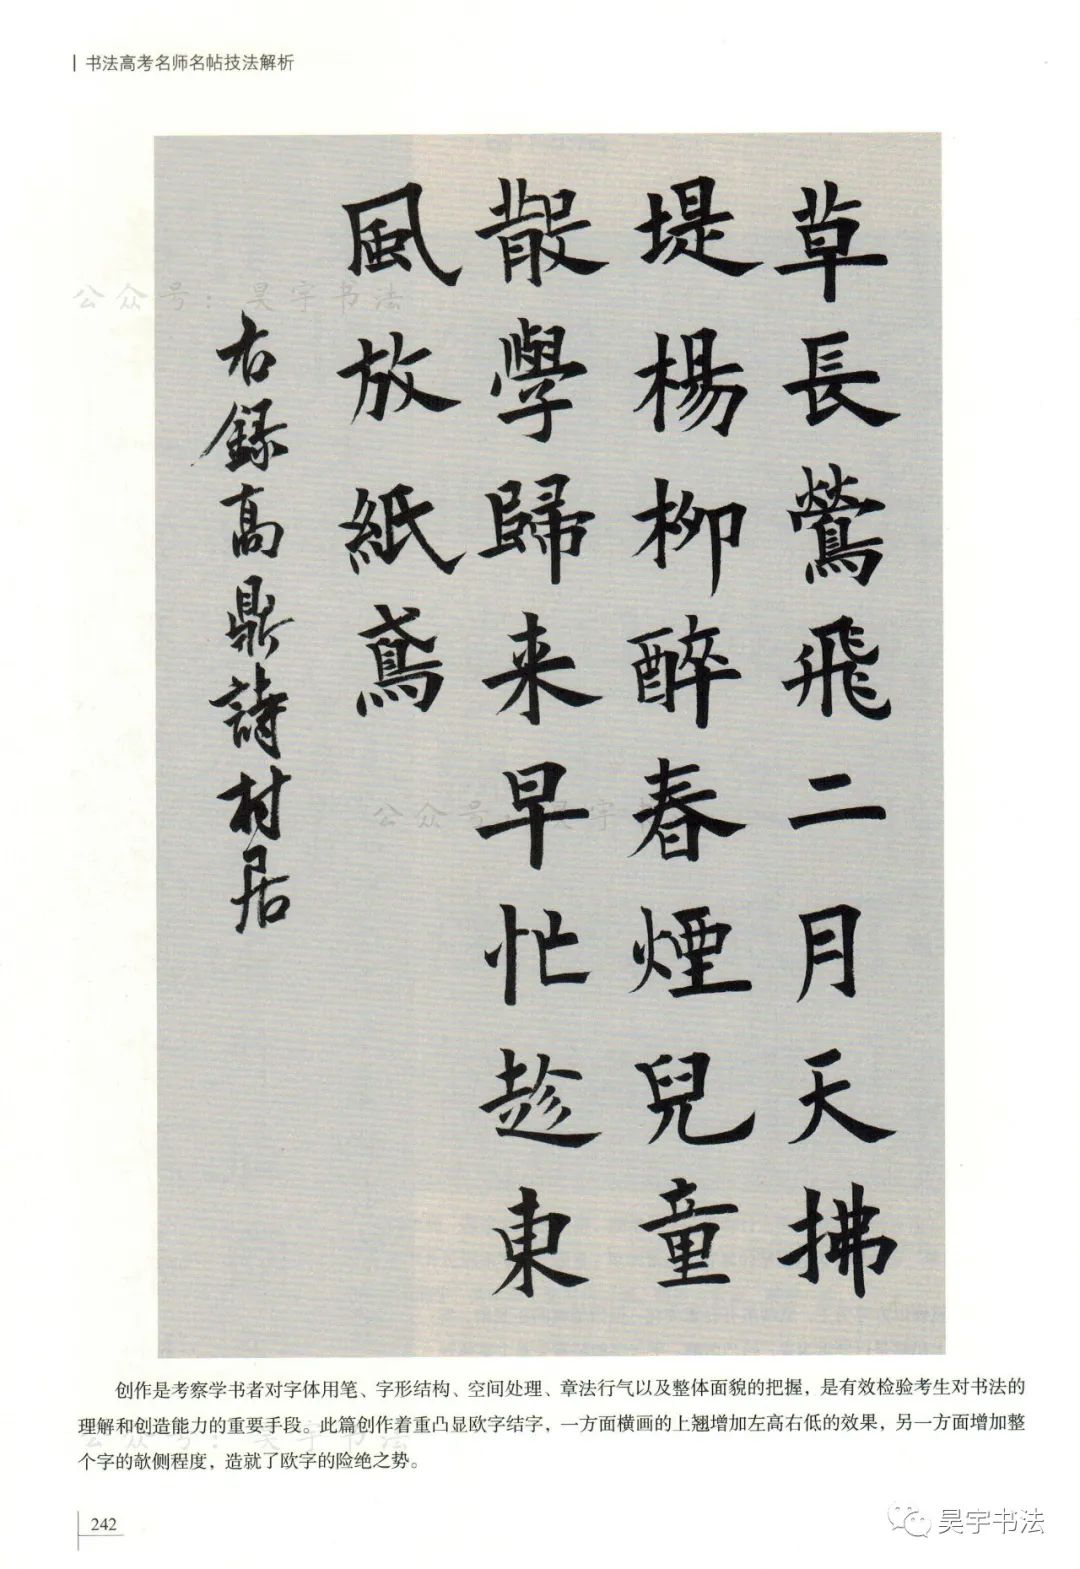 书法高考名师名帖技法解析
草長鶯飛二月天拂
堤楊柳醉春煙兒童
散學歸来早忙趁東
風放紙鳶
右録高鼎詩村居
公众号：昊宇书法
公众号：昊宇书
创作是考察学书者对字体用笔、字形结构、空间处理、章法行气以及整体面貌的把握，是有效检验考生对书法的
理解和创造能力的重要手段。此篇创作着重凸显欧字结字，一方面横画的上翘增加左高右低的效果，另一方面增加整
个字的欹侧程度，造就了欧字的险绝之势。
公众号：昊宇书法
242
昊宇书法